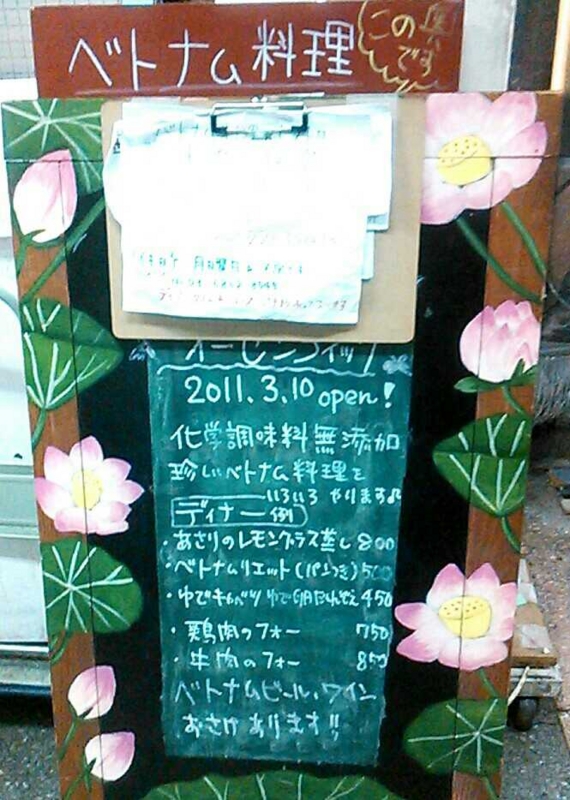 ベトナム料理
この奥です
オーセンティック
2011.3.10 open!
化学調味料無添加
珍しいベトナム料理を
いろいろ やります♪
ディナー例
・あさりのレモングラス蒸し 800
・ベトナムリエット(パンつき) 500
・ゆでキャベツ ゆで卵だれ添え 450
・鶏肉のフォー 750
・牛肉のフォー 850
ベトナムビール、ワイン
おさけあります!!